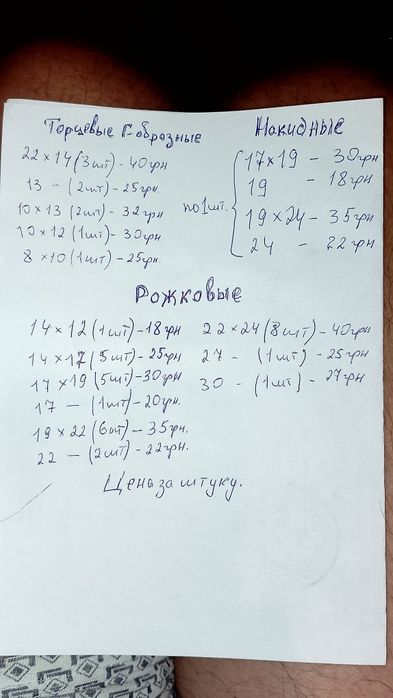 Торцевые Г-образные
22×14 (3шт) - 40грн
13 - (2шт) - 25грн.
10×13 (2шт) - 32грн
10×12 (1шт) - 30грн
8×10 (1шт) - 25грн.
Накидные
по 1шт.
17×19 - 30грн
19 - 18грн
19×24 - 35грн
24 - 22грн
Рожковые
14×12 (1шт) - 18грн
14×17 (5шт) - 25грн
17×19 (5шт) - 30грн
17 - (1шт) - 20грн.
19×22 (6шт) - 35грн.
22 - (2шт) - 22грн.
22×24 (8шт) - 40грн
27 - (1шт) - 25грн
30 - (1шт) - 27грн
Цена за штуку.